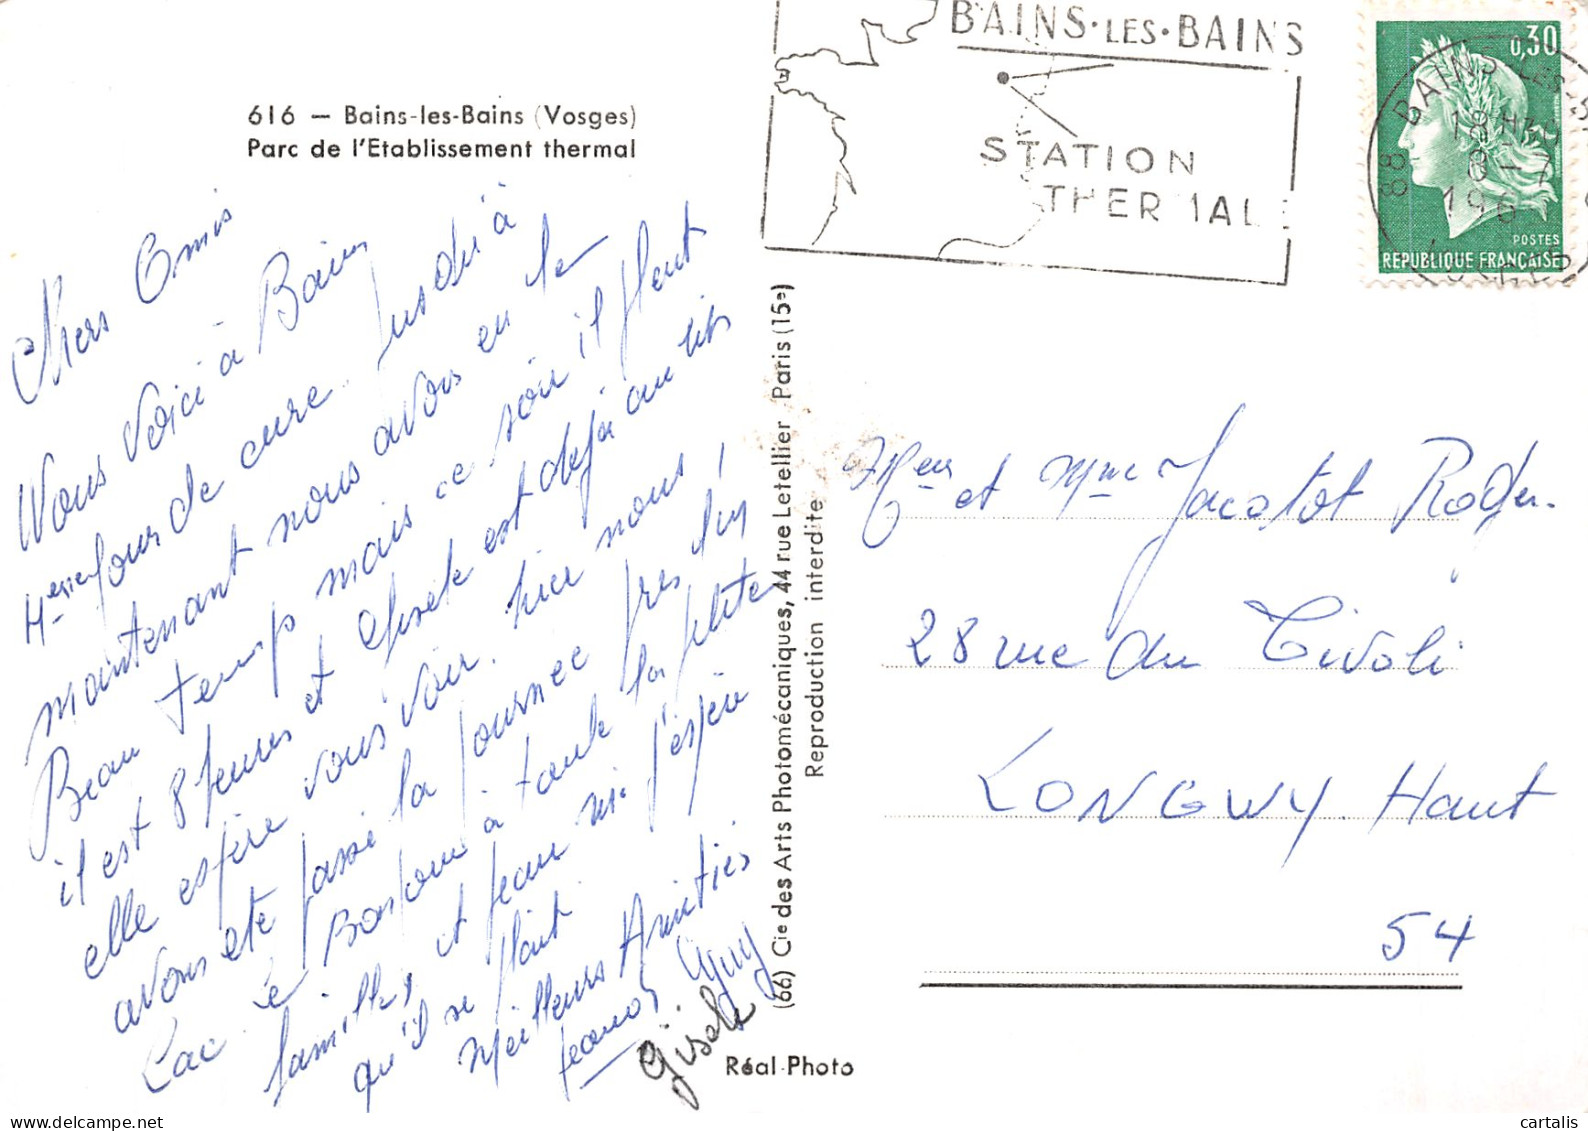 616 — Bains-les-Bains (Vosges)
Parc de l'Etablissement thermal
Chers Amis
Nous Voici à Bains
4eme jour de cure. Jusqu'à
maintenant nous avons eu le
Beau temps mais ce soir il pleut
il est 8 heures et Gisèle est déjà au lit
elle espère vous voir. hier nous
avons été passé la journée près du
Lac. Le Bonjour à toute la petite
famille, et Jean mi. j'espère
qu'il se plait.
Meilleurs Amitiés
Guy
Gisèle
BAINS·LES·BAINS
STATION
THERMALE
88 BAINS-LES-B
18H30
8-7
196
VOSGES
0,30
POSTES
REPUBLIQUE FRANÇAISE
(66) Cie des Arts Photomécaniques, 44 rue Letellier - Paris (15e)
Reproduction interdite
Mr et Mme Jacotot Roger.
28 rue du Tivoli
LONGWY Haut
54
Réal-Photo
cartalis